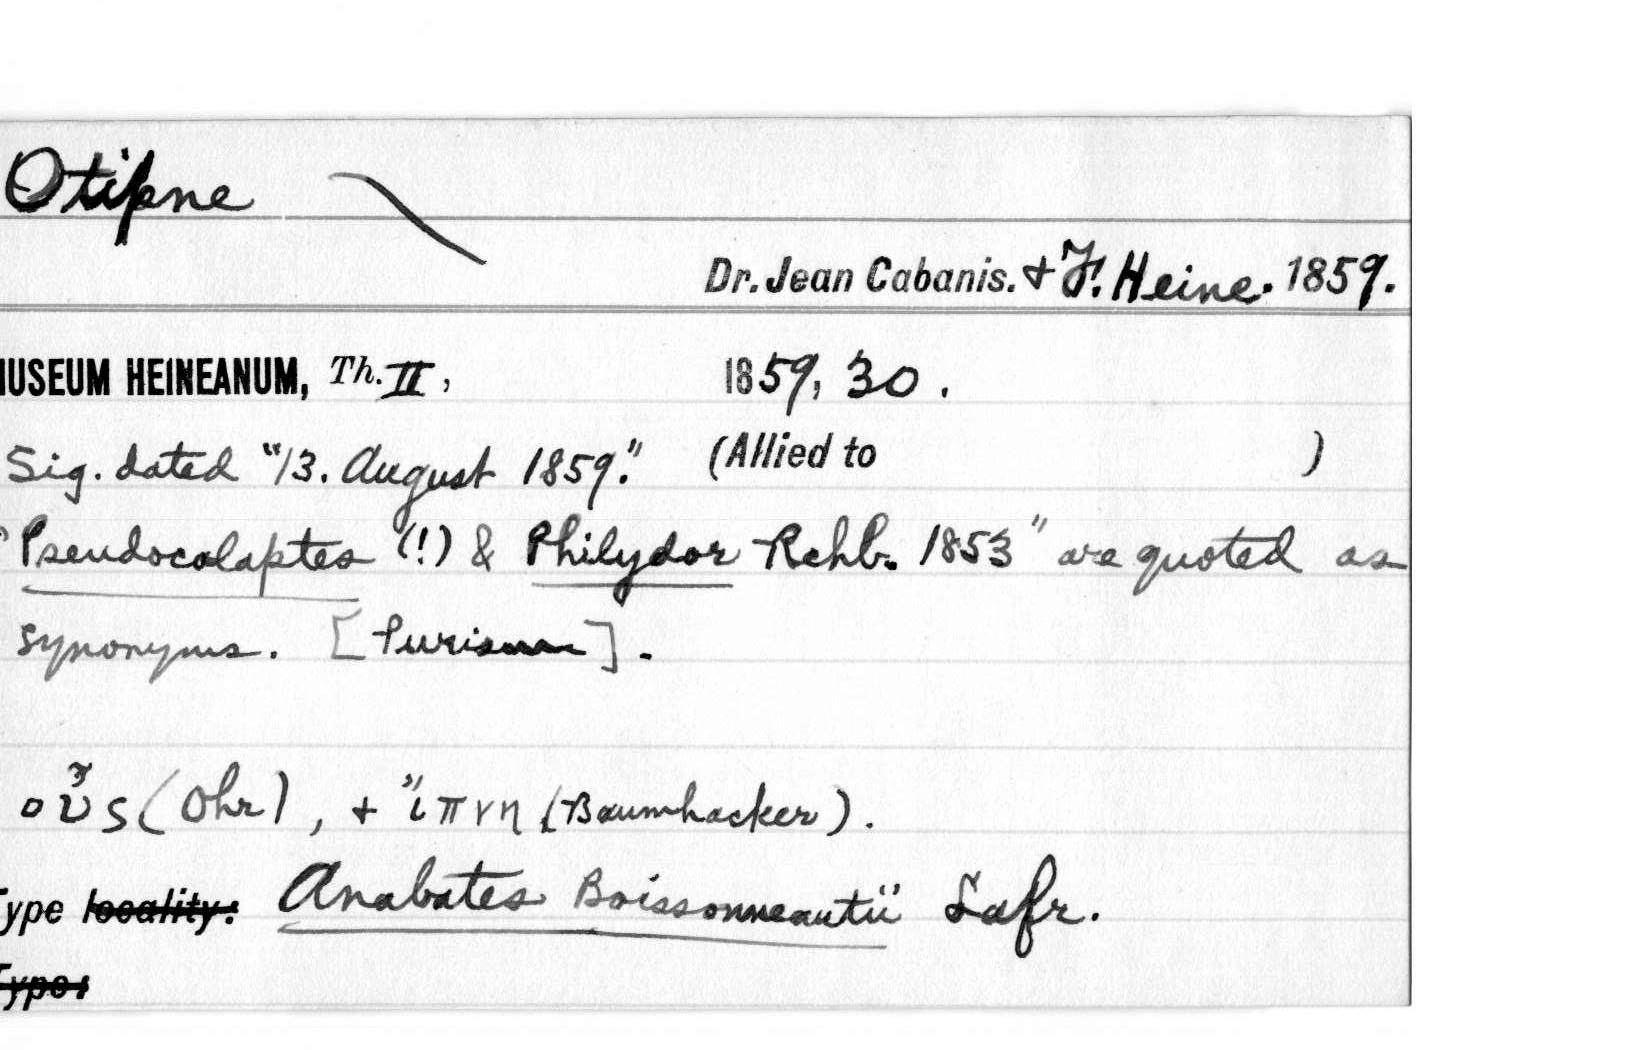 Otipne
Dr. Jean Cabanis. & F. Heine. 1859.
MUSEUM HEINEANUM, Th. II, 1859, 30.
Sig. dated "13. August 1859." (Allied to )
"Pseudocolaptes (!) & Philydor Rchb. 1853" are quoted as
synonyms. [Purism].
οὖς (Ohr), + ἵπνη (Baumhacker).
Type locality: Anabates Boissonneautii Lafr.
Type: